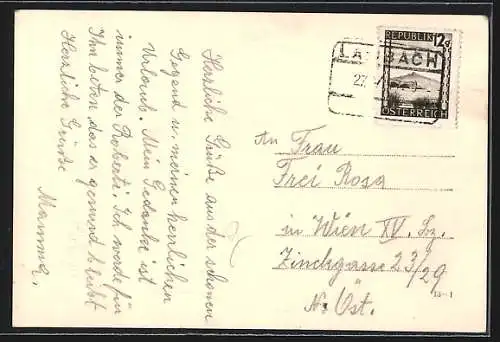 Herrliche Grüße aus der schönen
Gegend u. meinen herrlichen
Urlaub. Mein Gedanke ist
immer der Roberti. Ich werde für
Ihn beten das er gesund bleibt
Herzliche Grüße
Mamma.
REPUBLIK 12g
ÖSTERREICH
BACH
An Frau
Frei Rosa
in Wien XV. Bz.
Zinckgasse 23/29
N. Öst.